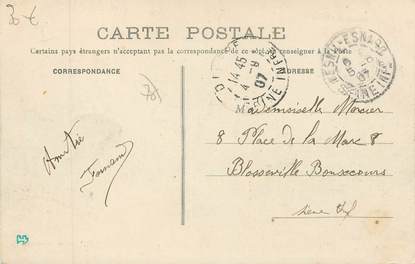 CARTE POSTALE
Certains pays étrangers n'acceptant pas la correspondance de ce côté, se renseigner à la Poste
CORRESPONDANCE
ADRESSE
14 45
4 -8
07
Amitié
Fernand
Mademoiselle Mercier
8 Place de la Mare 8
Blosseville Bonsecours
Seine Inf